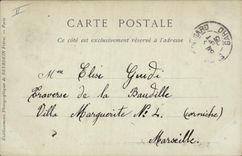 CARTE POSTALE
Ce côté est exclusivement réservé à l'adresse
Mme Elise Guidi
Traverse de la Baudille
Villa Marguerite Nº 4 (corniche)
Marseille
Etablissements Photographiques de NEURDEIN Frères. — Paris